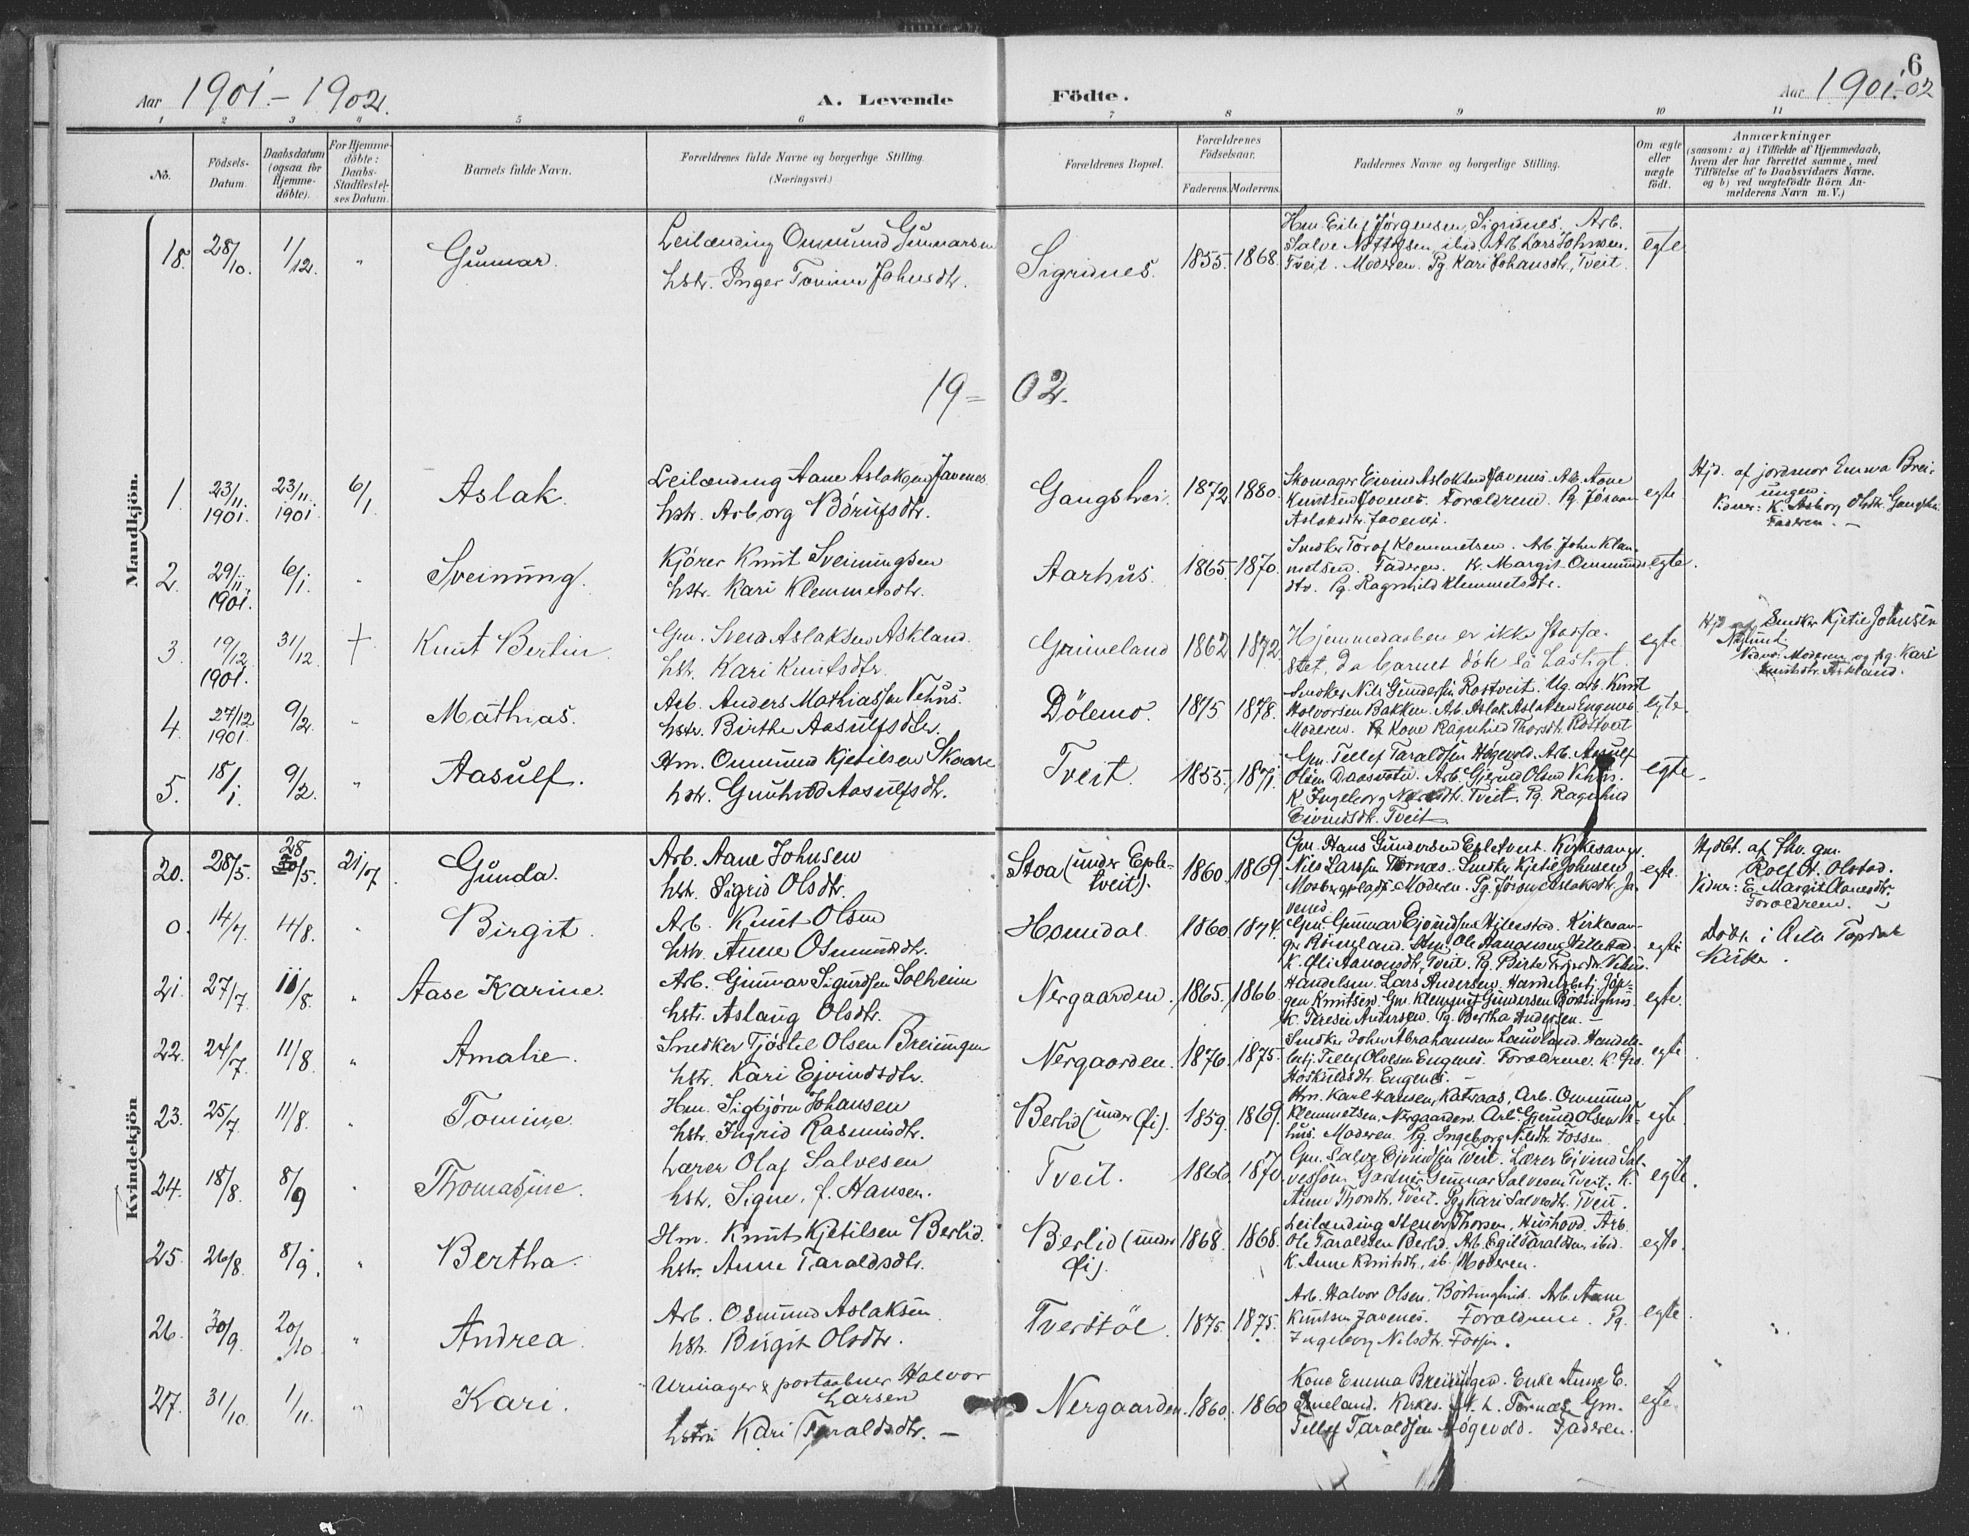 Aar 1901.-1902.
A. Levende Födte.
Aar 1901-02
6
1 2 3 4 5 6 7 8 9 10 11
No.
Födsels-Datum.
Daabsdatum (ogsaa for Hjemme-döbte).
For Hjemme-döbte: Daabs-Stadfæstel-ses Datum.
Barnets fulde Navn.
Forældrenes fulde Navne og borgerlige Stilling.
(Næringsvei.)
Forældrenes Bopæl.
Forældrenes Födselsaar.
Faderens. Moderens.
Faddernes Navne og borgerlige Stilling.
Om ægte eller uægte födt.
Anmærkninger
(saasom: a) i Tilfælde af Hjemmedaab,
hvem der har forrettet samme, med
Tilföielse af to Daabsvidners Navne.
og b) ved uægtefödte Börn An-
melderens Navn m. V.)
Mandkjön.
18. 28/10. 1/12. " Gunnar.
Leilænding Ommund Gunnarsen
hstr. Inger Tomine Johnsdtr.
Sigridnes. 1855. 1868.
Hm Eilef Jørgensen, Sigridnes, Arb.
Salve ibid. Arb. Lars Johnsen,
Tveit. Moderen. Pg. Kari Johansdtr., Tveit.
egte
19 = 02.
1. 23/11. 1901. 23/11. 1901. 6/1 Aslak.
Leilænding Aane Aslaksen Javenes
hstr. Asborg
Gangshei. 1872 1880.
Skomager Eivind Aslaksen Javenes. Arb. Aane
Knutsen Javenes. Forældrene. Pg. Jøran
Aslaksdtr. Javenes.
egte
Hjd. af jordmor Emma Brei-
ungen.
Vidner: K. Asborg Olsdtr. Gangshei
Faderen. —
2. 29/11. 1901. 6/1. " Sveinung.
Kjører Knut Sveinungsen
hstr. Kari Klemmetsdtr.
Aarhus. 1865. 1870.
Snedker Torof Klemmetsen. Arb. John Klem-
metsen. Faderen. K. Margit Ommunds-
dtr. Pg. Ragnhild Klemmetsdtr.
egte.
3. 19/12. 1901. 31/12. + Knut Bertin
Gm. Svend Aslaksen Askland.
hstr. Kari Knutsdtr.
Grimeland 1862 1872.
Hjemmedaaben er ikke stadfæ-
stet, da barnet døde så hastigt.
egte.
Hjd. af Snedker Kjetil Johnsen
Vidner: Moderen og pg. Kari
Knutsdtr. Askland.
4. 27/12 1901. 9/2. " Mathias.
Arb. Anders Mathiassen Vehus.
hstr. Birthe Aasulfsdtr.
Dölemo. 1875 1878.
Snedker Nils Gundersen Rostveit. Ug. arb. Knut
Halvorsen Bakken. Arb. Aslak Aslaksen Engenes
Moderen. Kone Ragnhild Thorsdtr. Rostveit
egte.
5. 18/1. 9/2. " Aasulf.
Hm. Ommund Kjetilsen Skaare
hstr. Gunhild Aasulfsdtr.
Tveit. 1855. 1871.
Gm. Tellef Taraldsen Høgevold. Arb. Aasulf
Olsen Arb. Gjerulf Olsen Vehus.
K. Ingeborg Tveit. Pg. Ragnhild
Eivindsdtr. Tveit
egte.
Kvindekjön
20. 28/5. 28/5. 21/07. Gunda.
Arb. Aane Johnsen
hstr. Sigrid Olsdtr.
Stoa (under Eple-
tveit). 1860. 1869.
Gm. Hans Gundersen Epletveit. Kirkesanger
Nils Larsen Tornæs. Snedker Kjetil Johnsen
Moderen. Pg. Jøran Aslaksdtr. Ja-
venes
egte.
Hjdbt. af Skv. gm.
Rolf H. Olstad.
Vidner: E. Margit Aanesdtr.
Forældrene.
0. 14/7. 4/8. " Birgit.
Arb. Knut Olsen
hstr. Anne Osmundsdtr.
Homdal. 1860. 1874.
Gm. Gunnar Eivindsen Hylestad. Kirkesan-
ger Rönneland. Ole Aanonsen
K. Aanonsdtr, Tveit. Pg. Birte Vehus.
egte
Döbt i Aslo Topdal
Kirke.
21. 27/7. 11/8. " Aase Karine.
Arb. Gunnar Sigurdsen Solheim
hstr. Aslaug Olsdtr.
Nergaarden. 1865. 1866.
Handelsm. Lars Andersen. Handelsbetj. Jør-
gen Knutsen. Gm. Klemmet Gundersen Börtinghus.
K. Terese Andersen. Pg. Bertha Andersen. —
egte.
22. 24/7. 11/8. " Amalie.
Snedker Tjöstel Olsen Breiungen
hstr. Kari Ejvindsdtr.
Nergaarden. 1876. 1875.
Snedker John Abrahamsen Lauvland. Handels-
betj. Tellef Olvesen Engenes. Forældrene. K. Gro
Höskuldsdtr. Engenes. —
egte.
23. 25/7. 11/8. " Tomine
Hm. Sigbjörn Johansen
hstr. Ingrid Rasmusdtr.
Berlid (under Øi). 1859. 1869.
Hm. Karl Hansen, Katraas, Arb. Ommund
Klemmetsen, Nergaarden. Arb. Gjerulf Olsen Ve-
hus. Moderen. Pg. Ingeborg Nilsdtr. Fossen.
egte.
24. 18/8. 8/9. " Thomasine.
Lærer Olaf Salvesen
hstr. Signe, f. Hansen.
Tveit. 1866. 1870.
Gm. Salve Ejvindsen Tveit. Lærer Ejvind Sal-
vessön. Gartner Gunnar Salvesen Tveit. K.
Anne Thorsdtr. Tveit. Pg. Kari Salvesdtr. Tveit.
egte.
25. 26/8. 8/9. " Bertha.
Hm. Knut Kjetilsen Berlid.
hstr. Anne Taraldsdtr.
Berlid (under
Øi). 1868. 1868.
Leilænding Stener Thorsen, Hushovd. Arb.
Ole Taraldsen Berlid. Arb. Egil Taraldsen, ibid.
K. Anne Knutsdtr, ib. Moderen.
egte.
26. 30/9. 20/10. " Andrea.
Arb. Osmund Aslaksen
hstr. Birgit Olsdtr.
Tverstöl. 1875. 1875.
Arb. Halvor Olsen, Börtinghus. Arb. Aane
Knutsen Javenes. Forældrene. Pg.
Ingeborg Nilsdtr. Fossen.
egte.
27. 31/10. 1/11. " Kari.
Urmager & postaabner Halvor
Larsen
hstru Kari Taraldsdtr. —
Nergaarden. 1860. 1860
Kone Emma Breiungen. Enke Anne E.
Kirkes. N. L. Tornæs. Gm.
Tellef Taraldsen Høgevold. Faderen.
egte